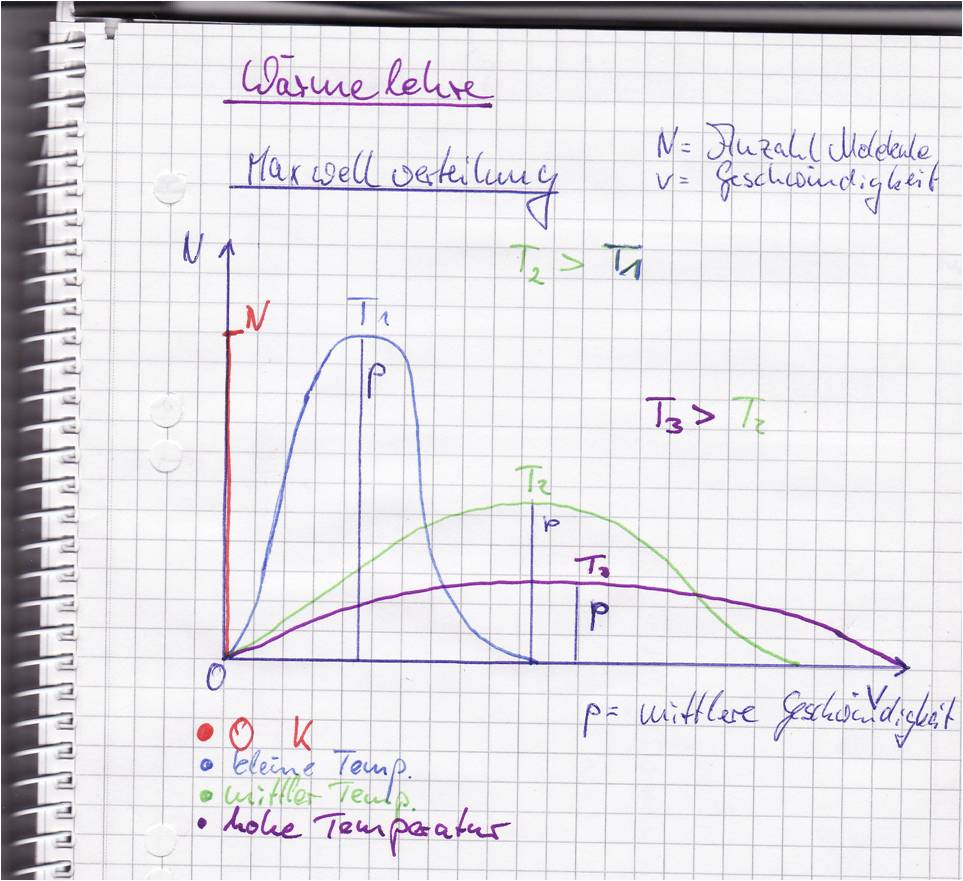 Wärmelehre
Maxwellverteilung
N = Anzahl Moleküle
v = Geschwindigkeit
N
T2 > T1
N
T1
p
T3 > T2
T2
p
T3
p
O
v
p = mittlere Geschwindigkeit
• O K
• kleine Temp.
• mittler Temp.
• hohe Temperatur